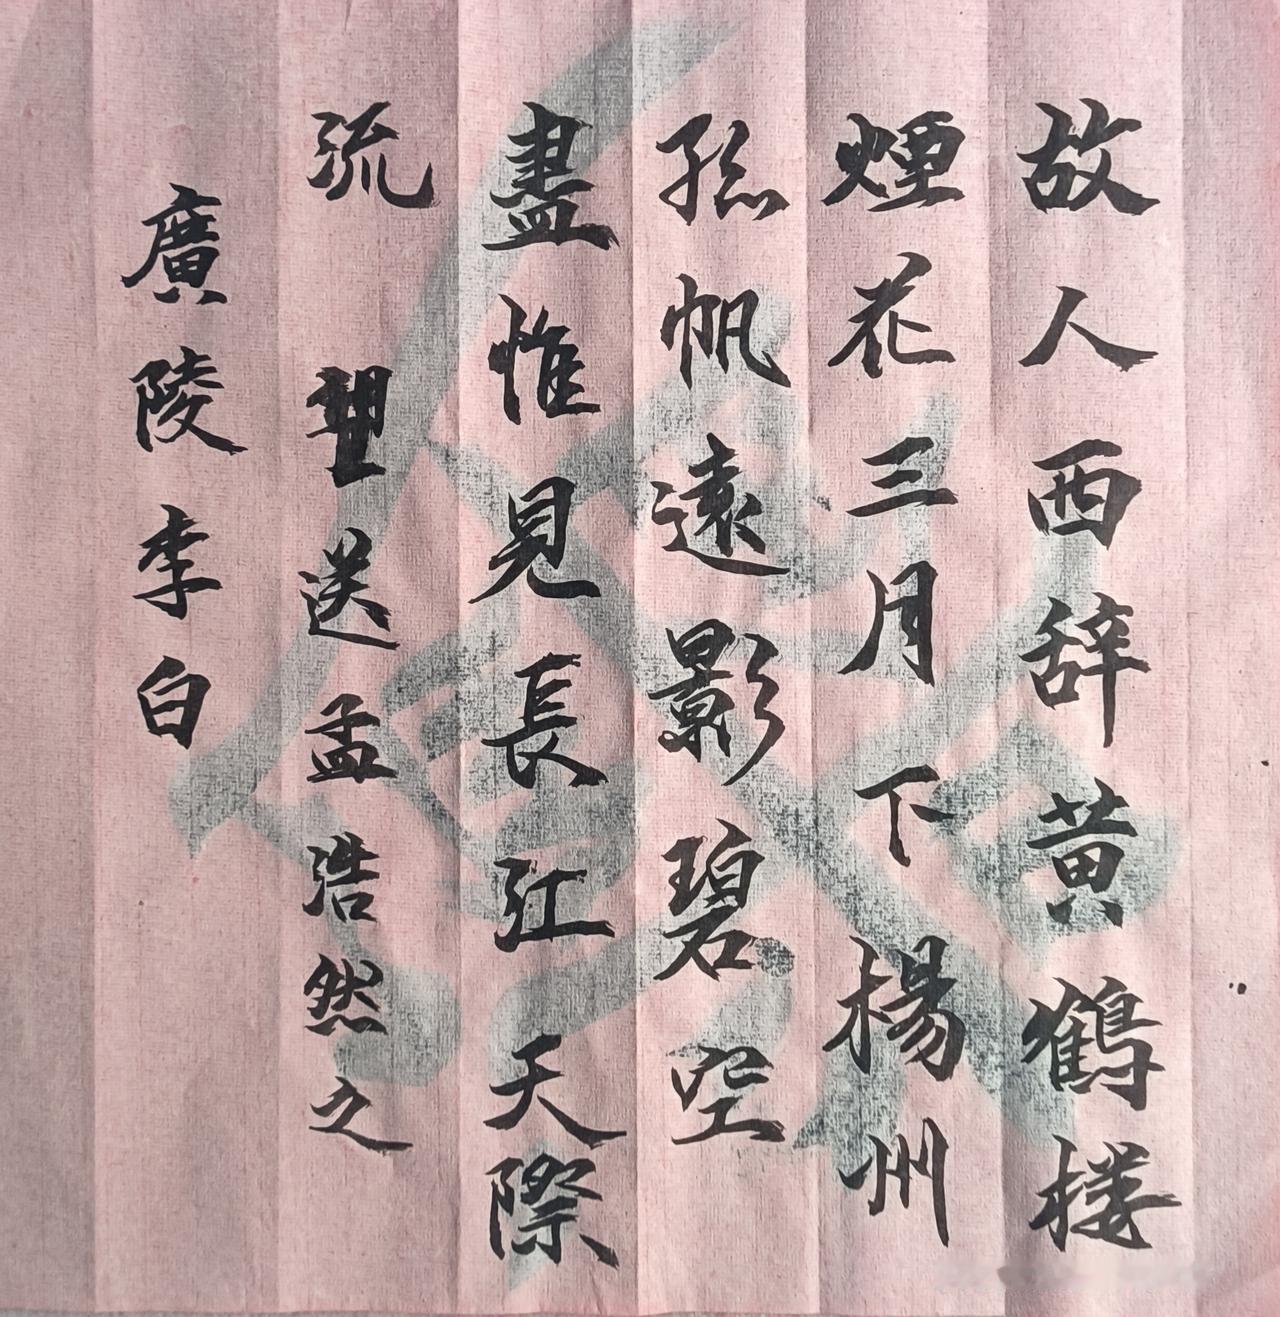 故人西辞黄鶴楼
煙花三月下楊州
孤帆遠影碧空
盡惟見長江天際
流 望送孟浩然之
廣陵李白